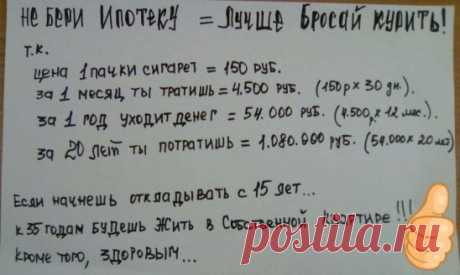 Не бери Ипотеку = Лучше Бросай курить!
т.к.
цена 1 пачки сигарет = 150 руб.
за 1 месяц ты тратишь = 4.500 руб. (150р х 30 дн.)
за 1 год уходит денег = 54.000 руб. (4.500р х 12 мес.)
за 20 лет ты потратишь = 1.080.000 руб. (54.000 х 20 лет)
Если начнешь откладывать с 15 лет...
к 35 годам будешь жить в Собственной квартире!!!
кроме того, здоровым...
postila.ru